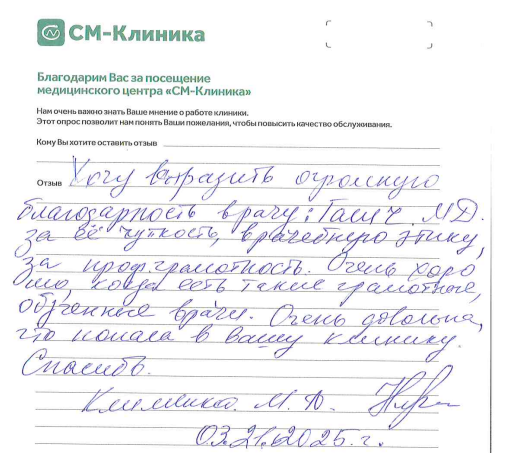 СМ-Клиника
Благодарим Вас за посещение
медицинского центра «СМ-Клиника»
Нам очень важно знать Ваше мнение о работе клиники.
Этот опрос позволит нам понять Ваши пожелания, чтобы повысить качество обслуживания.
Кому Вы хотите оставить отзыв
Отзыв Хочу выразить огромную
благодарность врачу: Галич М.Д.
за её чуткость, врачебную этику,
за проф.грамотность. Очень хоро
шо, когда есть такие грамотные,
обученные врачи. Очень довольна,
что попала в вашу клинику.
Спасибо.
М. А.
03.21.2025 г.